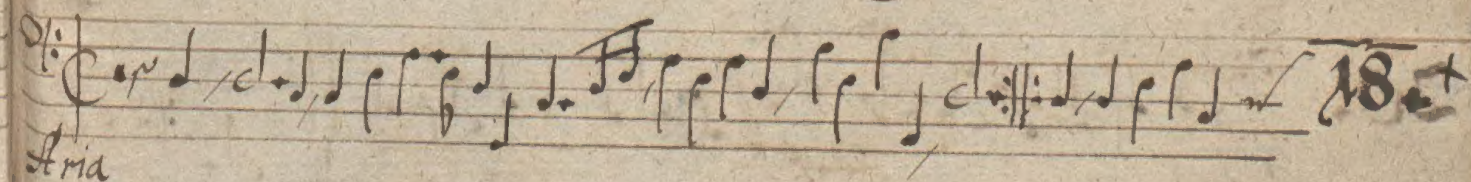 18.
Aria